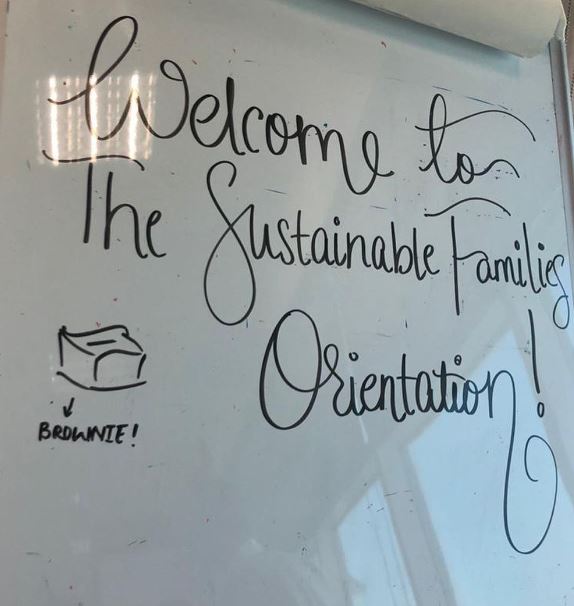 Welcome to
The Sustainable Families
Orientation!
BROWNIE!